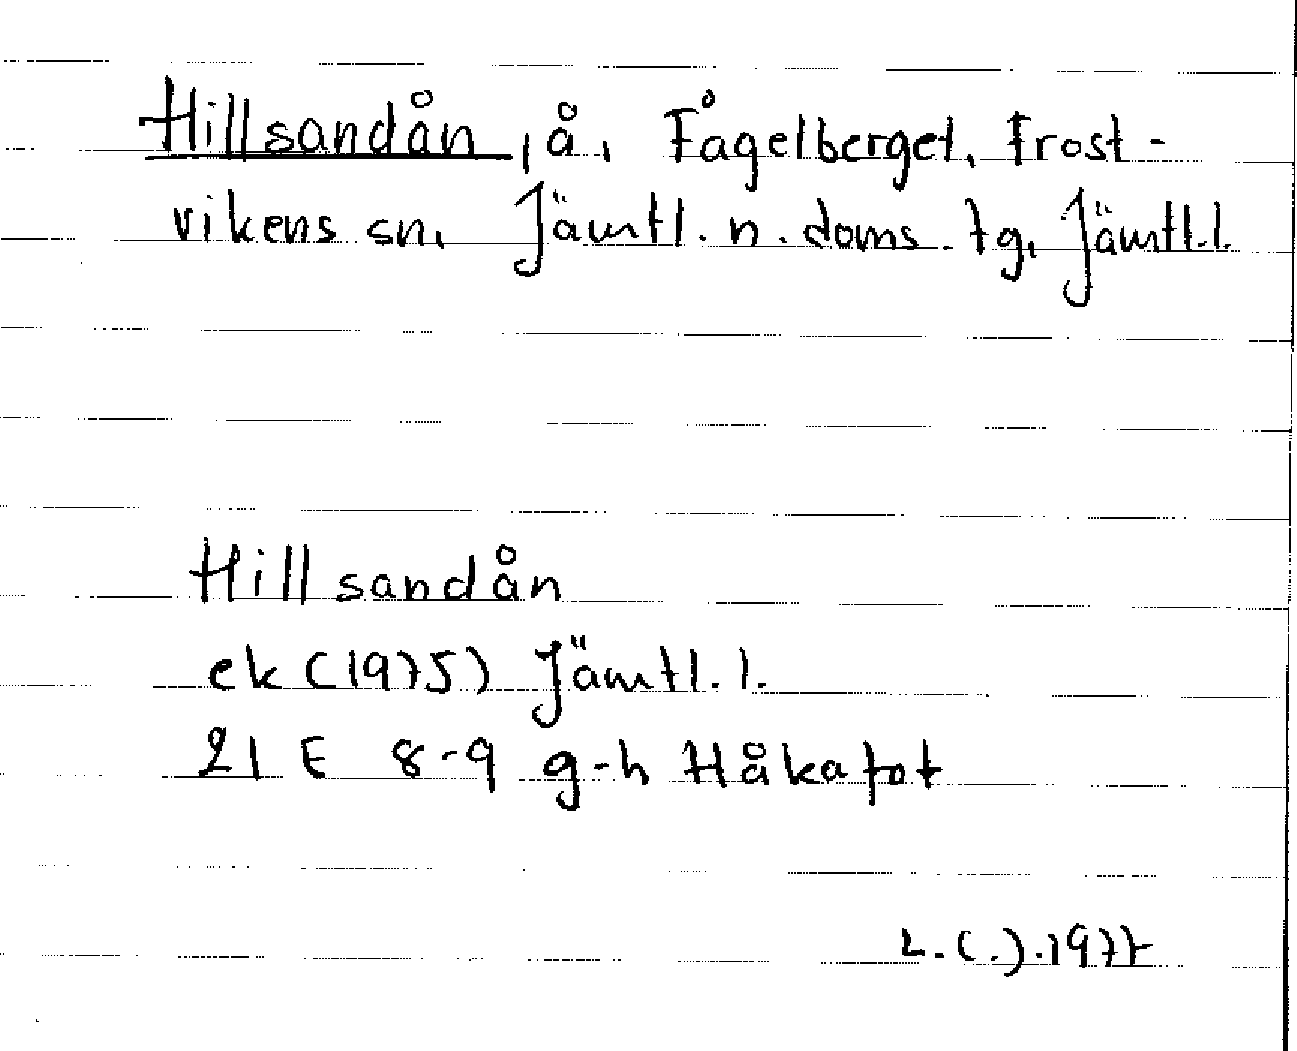 Hillsandån, å, Fågelberget, Frost-
vikens sn, Jämtl. n. doms. tg, Jämtl.l.
Hillsandån
ek (1975) Jämtl.l.
21 E 8-9 g-h Håkafot
1977